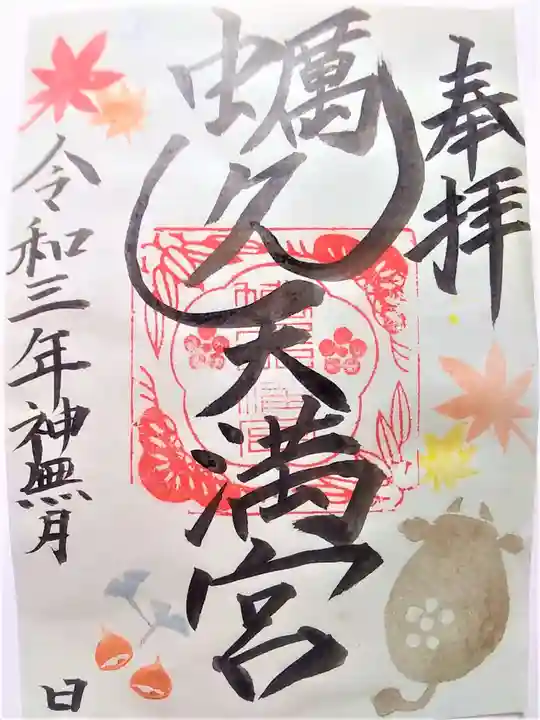 奉拝
蠣久天満宮
令和三年神無月
日